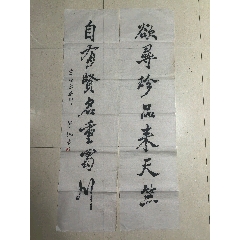 欲尋珍品来天煞
自有賢名重蜀川